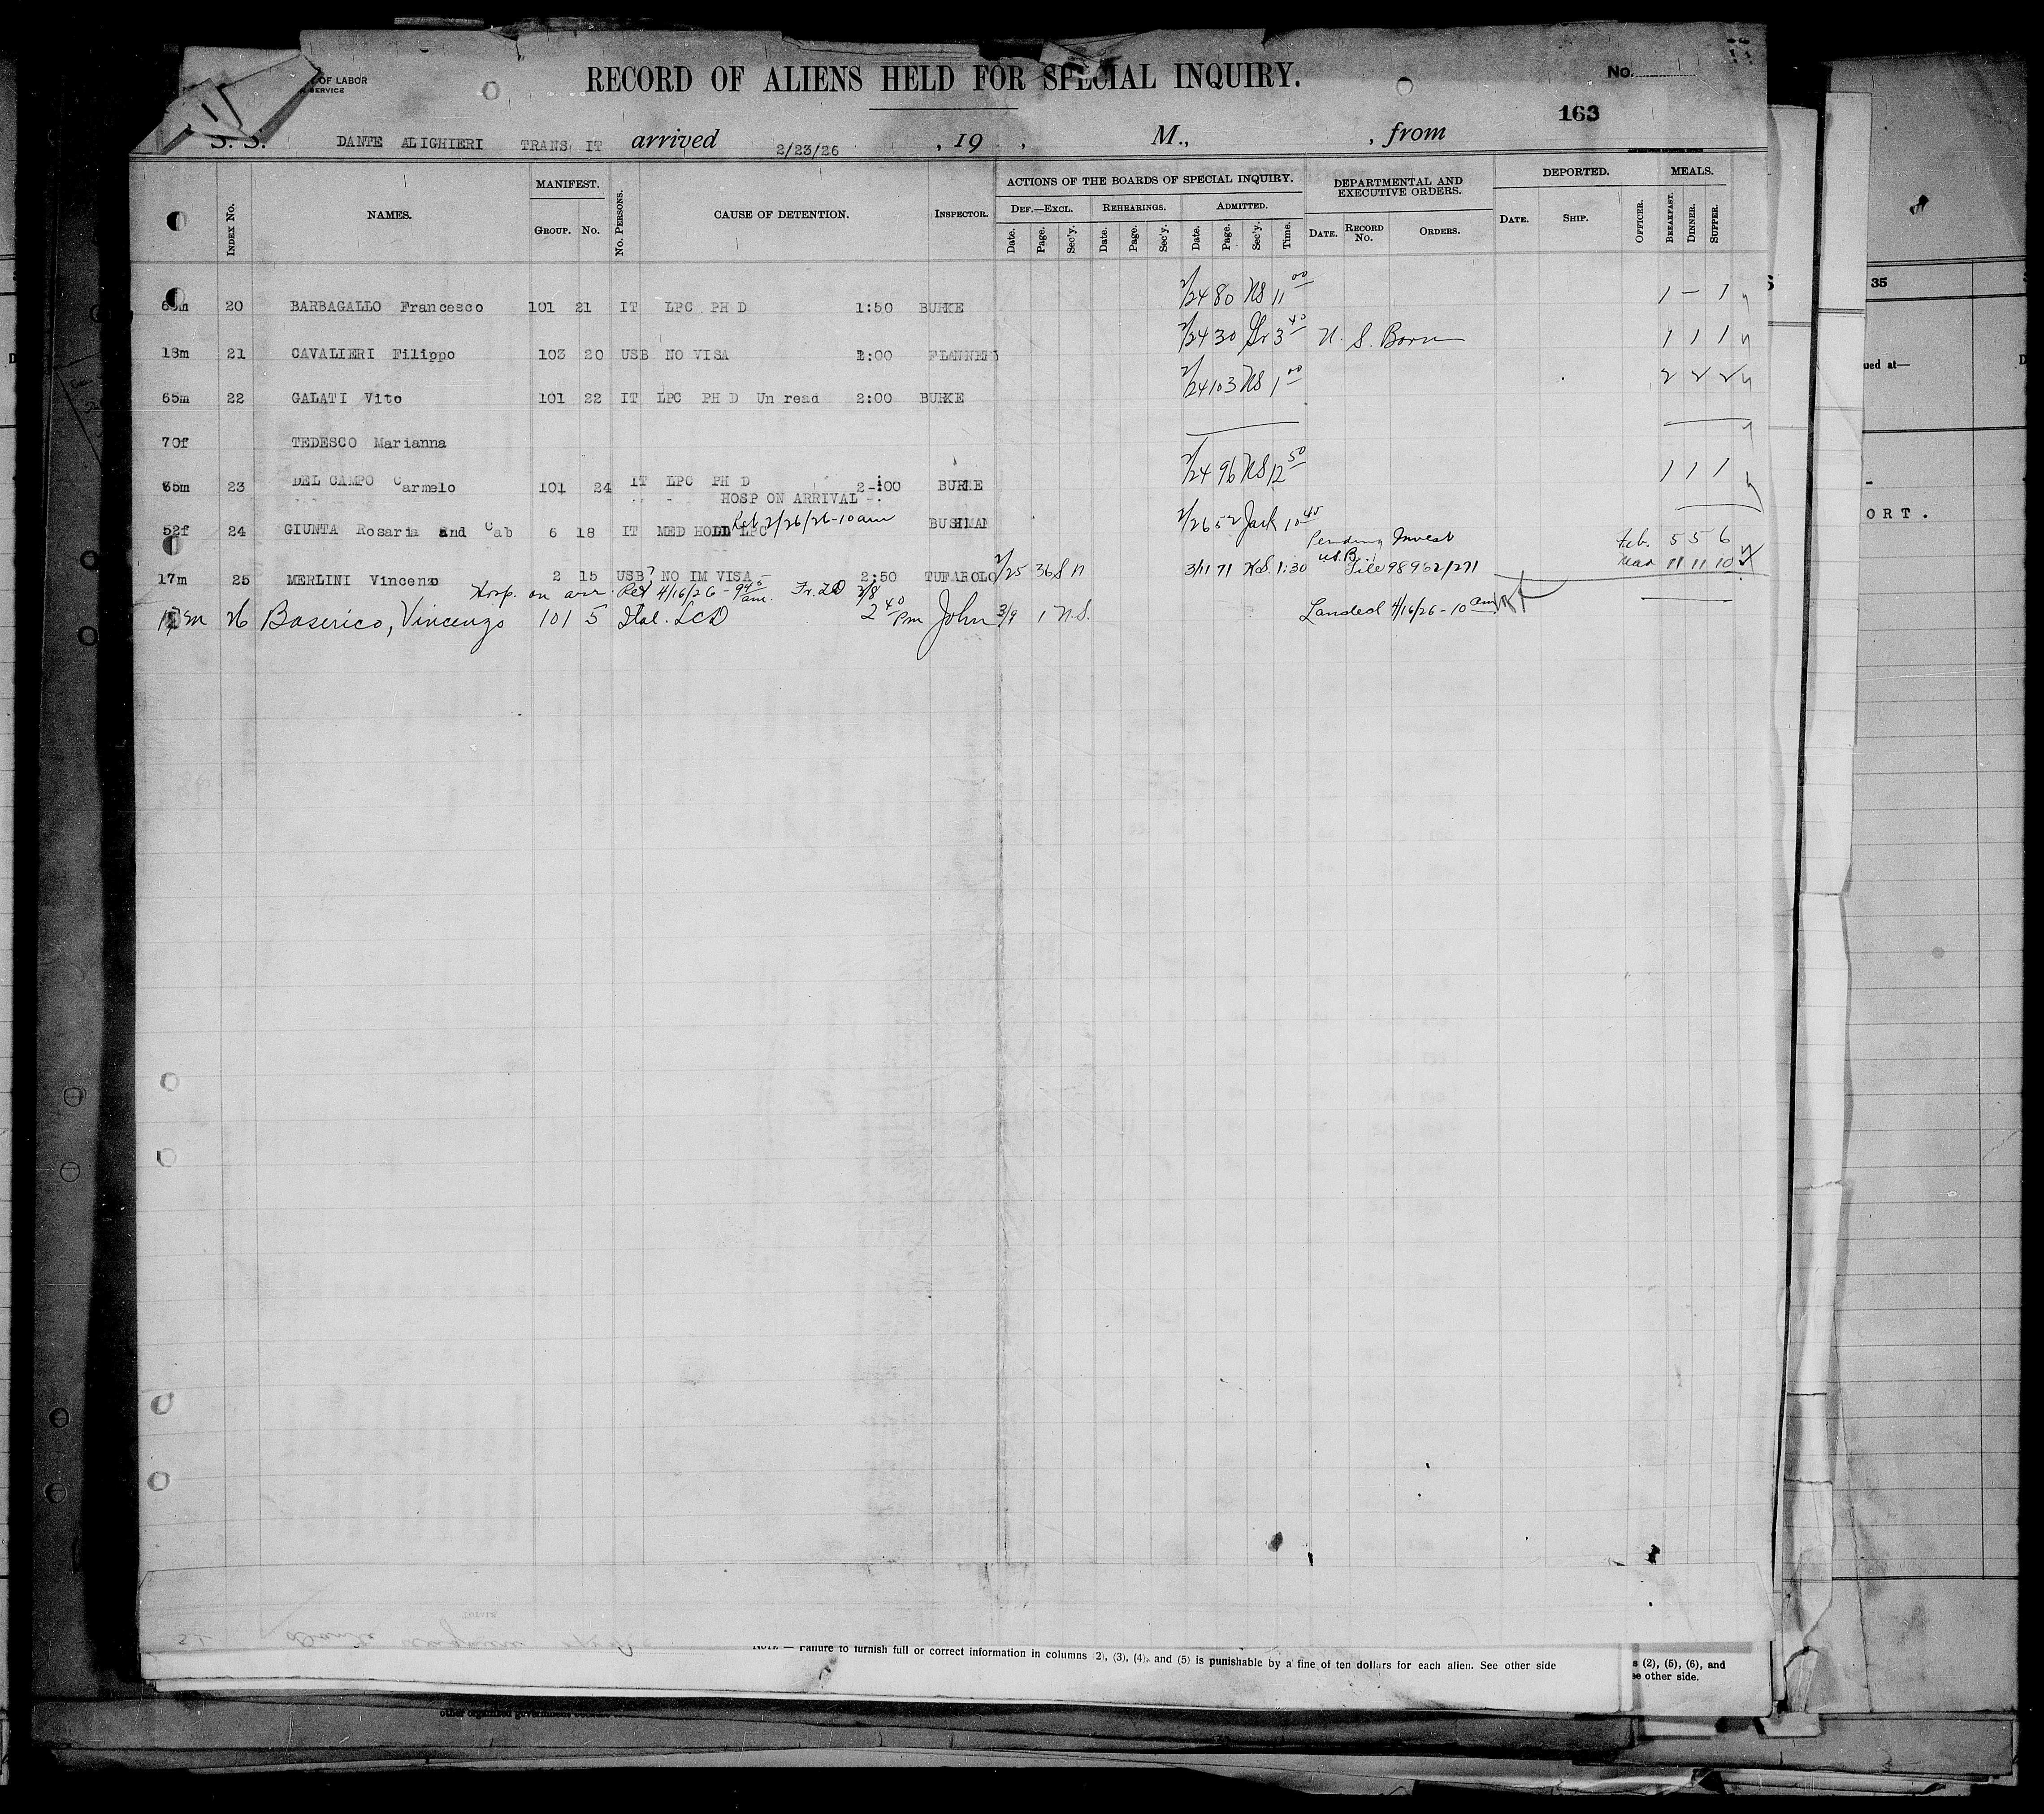 OF LABOR
SERVICE
RECORD OF ALIENS HELD FOR SPECIAL INQUIRY.
No.
163
S. S. DANTE ALIGHIERI TRANS IT arrived 2/23/26 , 19 , M., , from
INDEX NO. NAMES. MANIFEST. GROUP. NO. NO. PERSONS. CAUSE OF DETENTION. INSPECTOR. ACTIONS OF THE BOARDS OF SPECIAL INQUIRY. DEF.—EXCL. REHEARINGS. ADMITTED. DEPARTMENTAL AND EXECUTIVE ORDERS. DEPORTED. MEALS.
Date. Page. Sec'y. Date. Page. Sec'y. Date. Page. Sec'y. Time. DATE. RECORD NO. ORDERS. DATE. SHIP. OFFICER. BREAKFAST. DINNER. SUPPER.
20 BARBAGALLO Francesco 101 21 IT LPC PH D 1:50 BURKE 2/24 80 NS 11 00 1 — 1
18m 21 CAVALIERI Filippo 103 20 USB NO VISA 2:00 FLANNERY 2/24 30 3 40 U. S. Born 1 1 1
65m 22 GALATI Vito 101 22 IT LPC PH D Un read 2:00 BURKE 2/24 103 NS 1 00 2 2 2
70f TEDESCO Marianna
65m 23 DEL CAMPO Carmelo 101 24 IT LPC PH D 2:00 BURKE 2/24 96 NS 12 50 1 1 1
HOSP ON ARRIVAL
Rel 2/26/26-10am
52f 24 GIUNTA Rosaria and Cab 6 18 IT MED HOLD LPC BUSHMAN 2/26 52 Jack 10 45
Pending Invest
U.S.B.
Feb. 5 5 6
17m 25 MERLINI Vincenzo 2 15 USB? NO IM VISA 2:50 TUFAROLO 2/25 36 S N 3/11 71 1:30 File 98962/271 Mar 11 11 10
Hosp. on arr. Rel 4/16/26 - 9 45 am. 3/8
26 Baserico, Vincenzo 101 5 Ital. LCD 2 40 Pm John 3/9 1 N.S. Landed 4/16/26-10 am
NOTE — Failure to furnish full or correct information in columns (2), (3), (4), and (5) is punishable by a fine of ten dollars for each alien. See other side
s (2), (5), (6), and
ee other side.
35
ued at—
ORT.